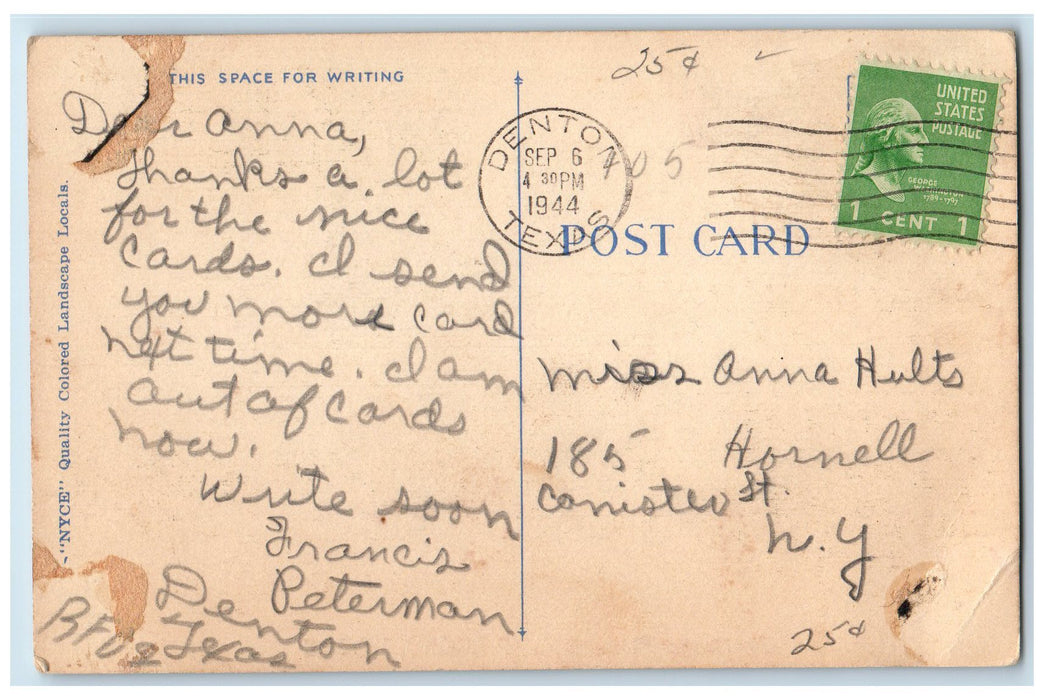 THIS SPACE FOR WRITING
Dear Anna,
Thanks a lot
for the nice
cards. I send
you more card
next time. I am
out of cards
now.
Write soon
Francis
Peterman
Denton
Texas
"NYCE" Quality Colored Landscape Locals.
25¢
DENTON
SEP 6
4 30 PM
1944
TEXAS
405
UNITED
STATES
POSTAGE
GEORGE
WASHINGTON
1789-1797
1 CENT 1
POST CARD
Miss Anna Hults
185 Hornell
Canisteo St.
N.Y
25¢